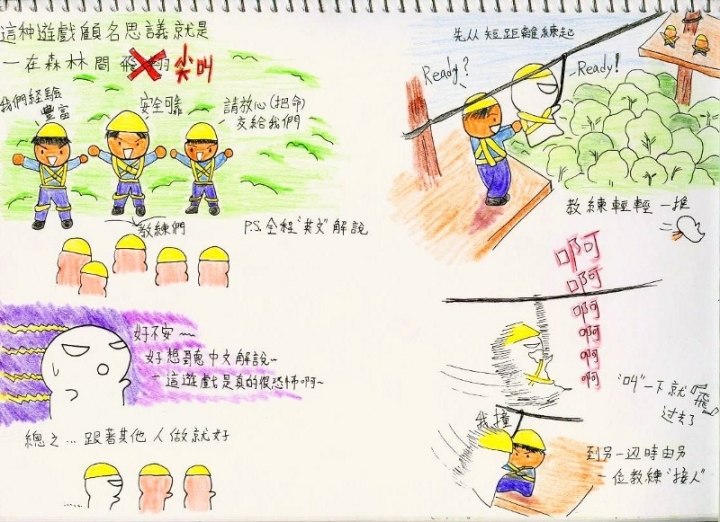 這种遊戲顧名思議就是
一在森林間飛翔 尖叫
我們經驗
豐富
安全可靠
請放心(把命)
交給我們
教練們
P.S. 全程"英文"解說
好不安~
好想聽中文解說~
這遊戲是真的很恐怖啊~
總之...跟著其他人做就好
先从短距離練起
Ready?
Ready!
教練輕輕一推
啊
啊
啊
啊
啊
啊
"叫"一下就飛
过去了
我撞
到另一边時由另
一位教練"接人"